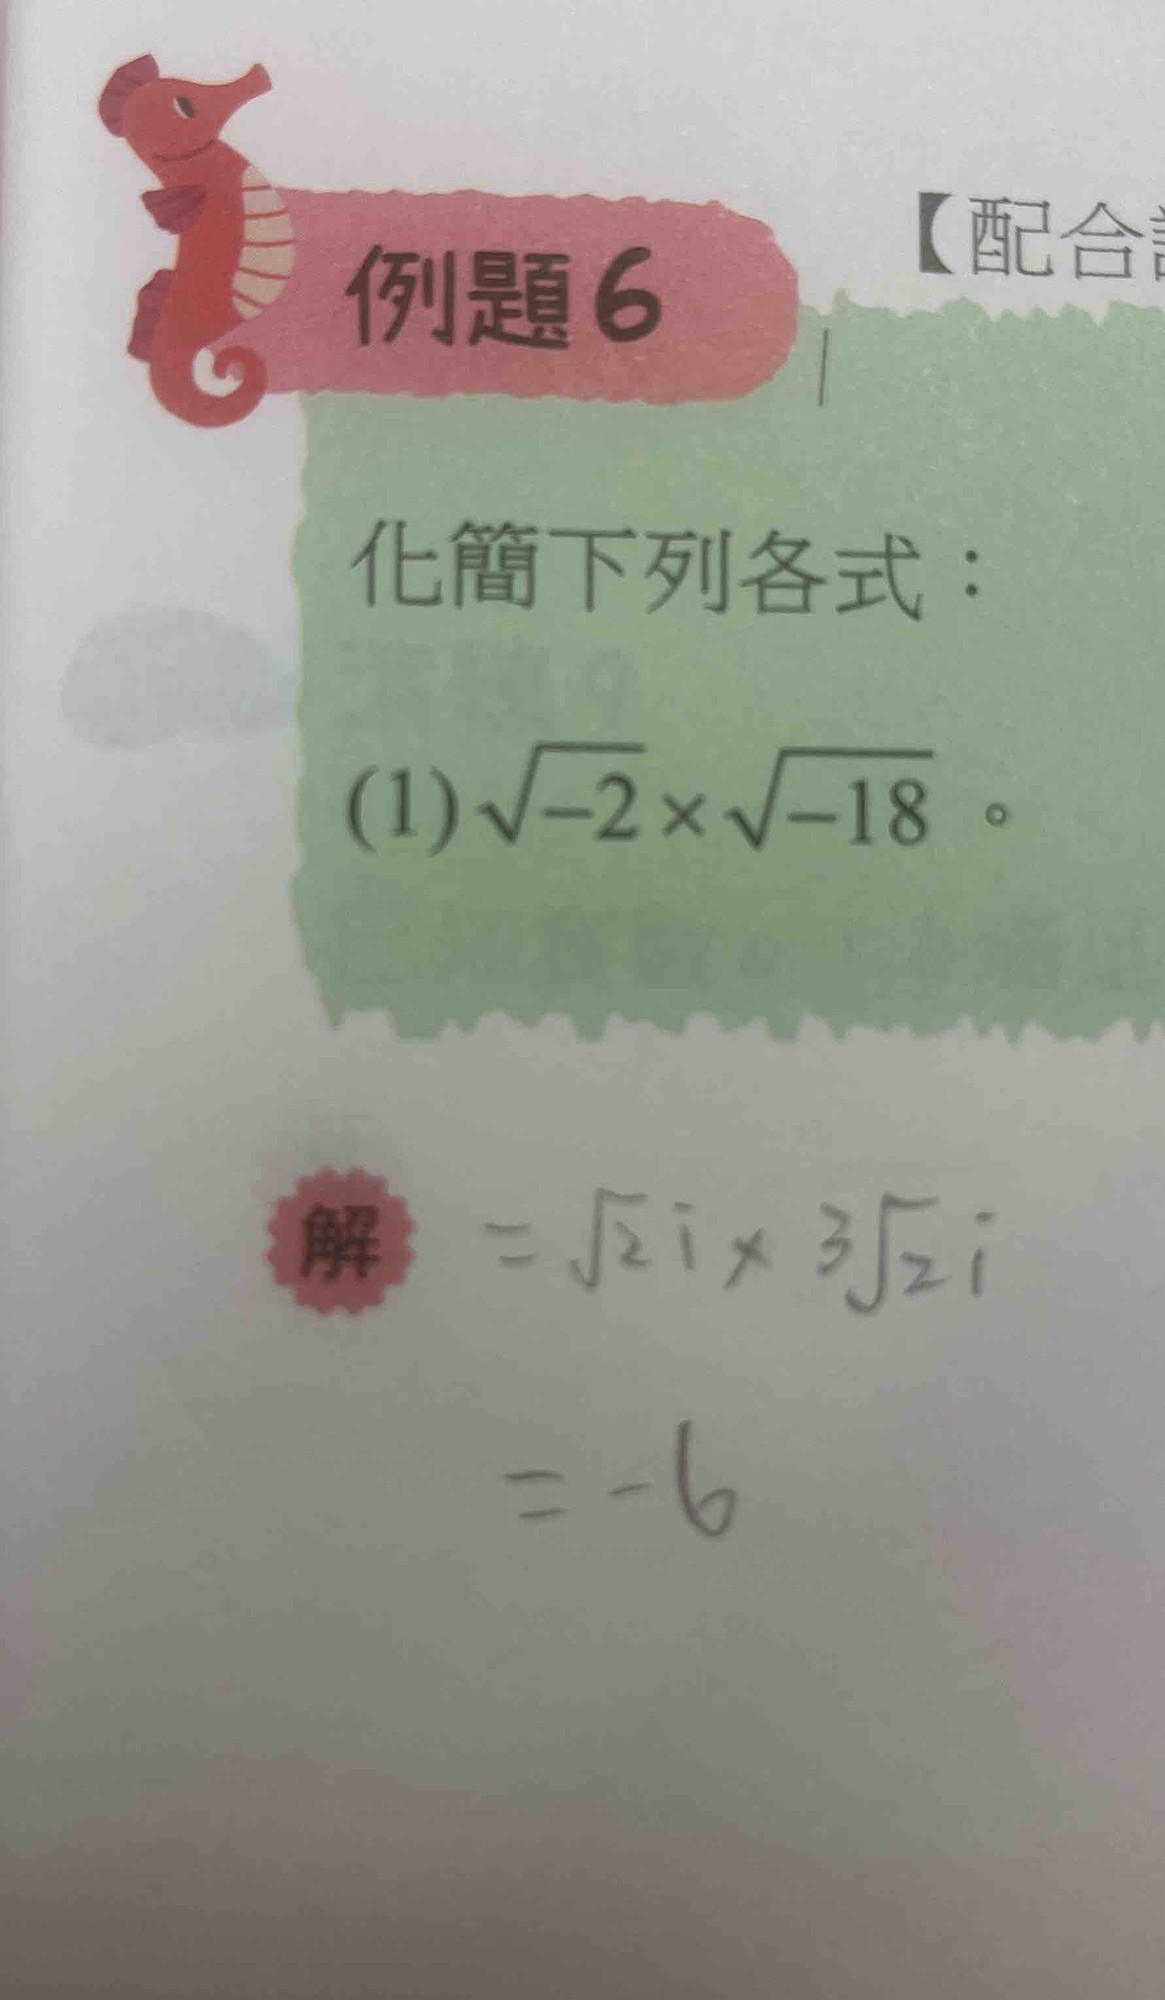 【配合
例題6
化簡下列各式：
(1)√-2×√-18。
解 =√2i×3√2i
=-6